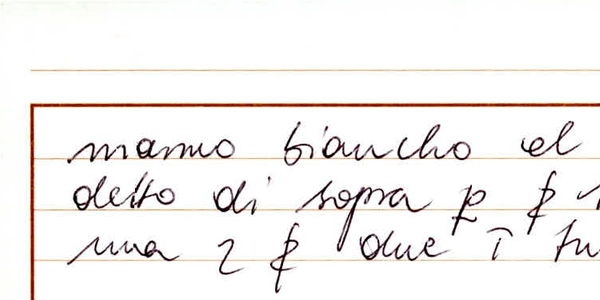 marmo biancho el
detto di sopra p
una 2 due ī